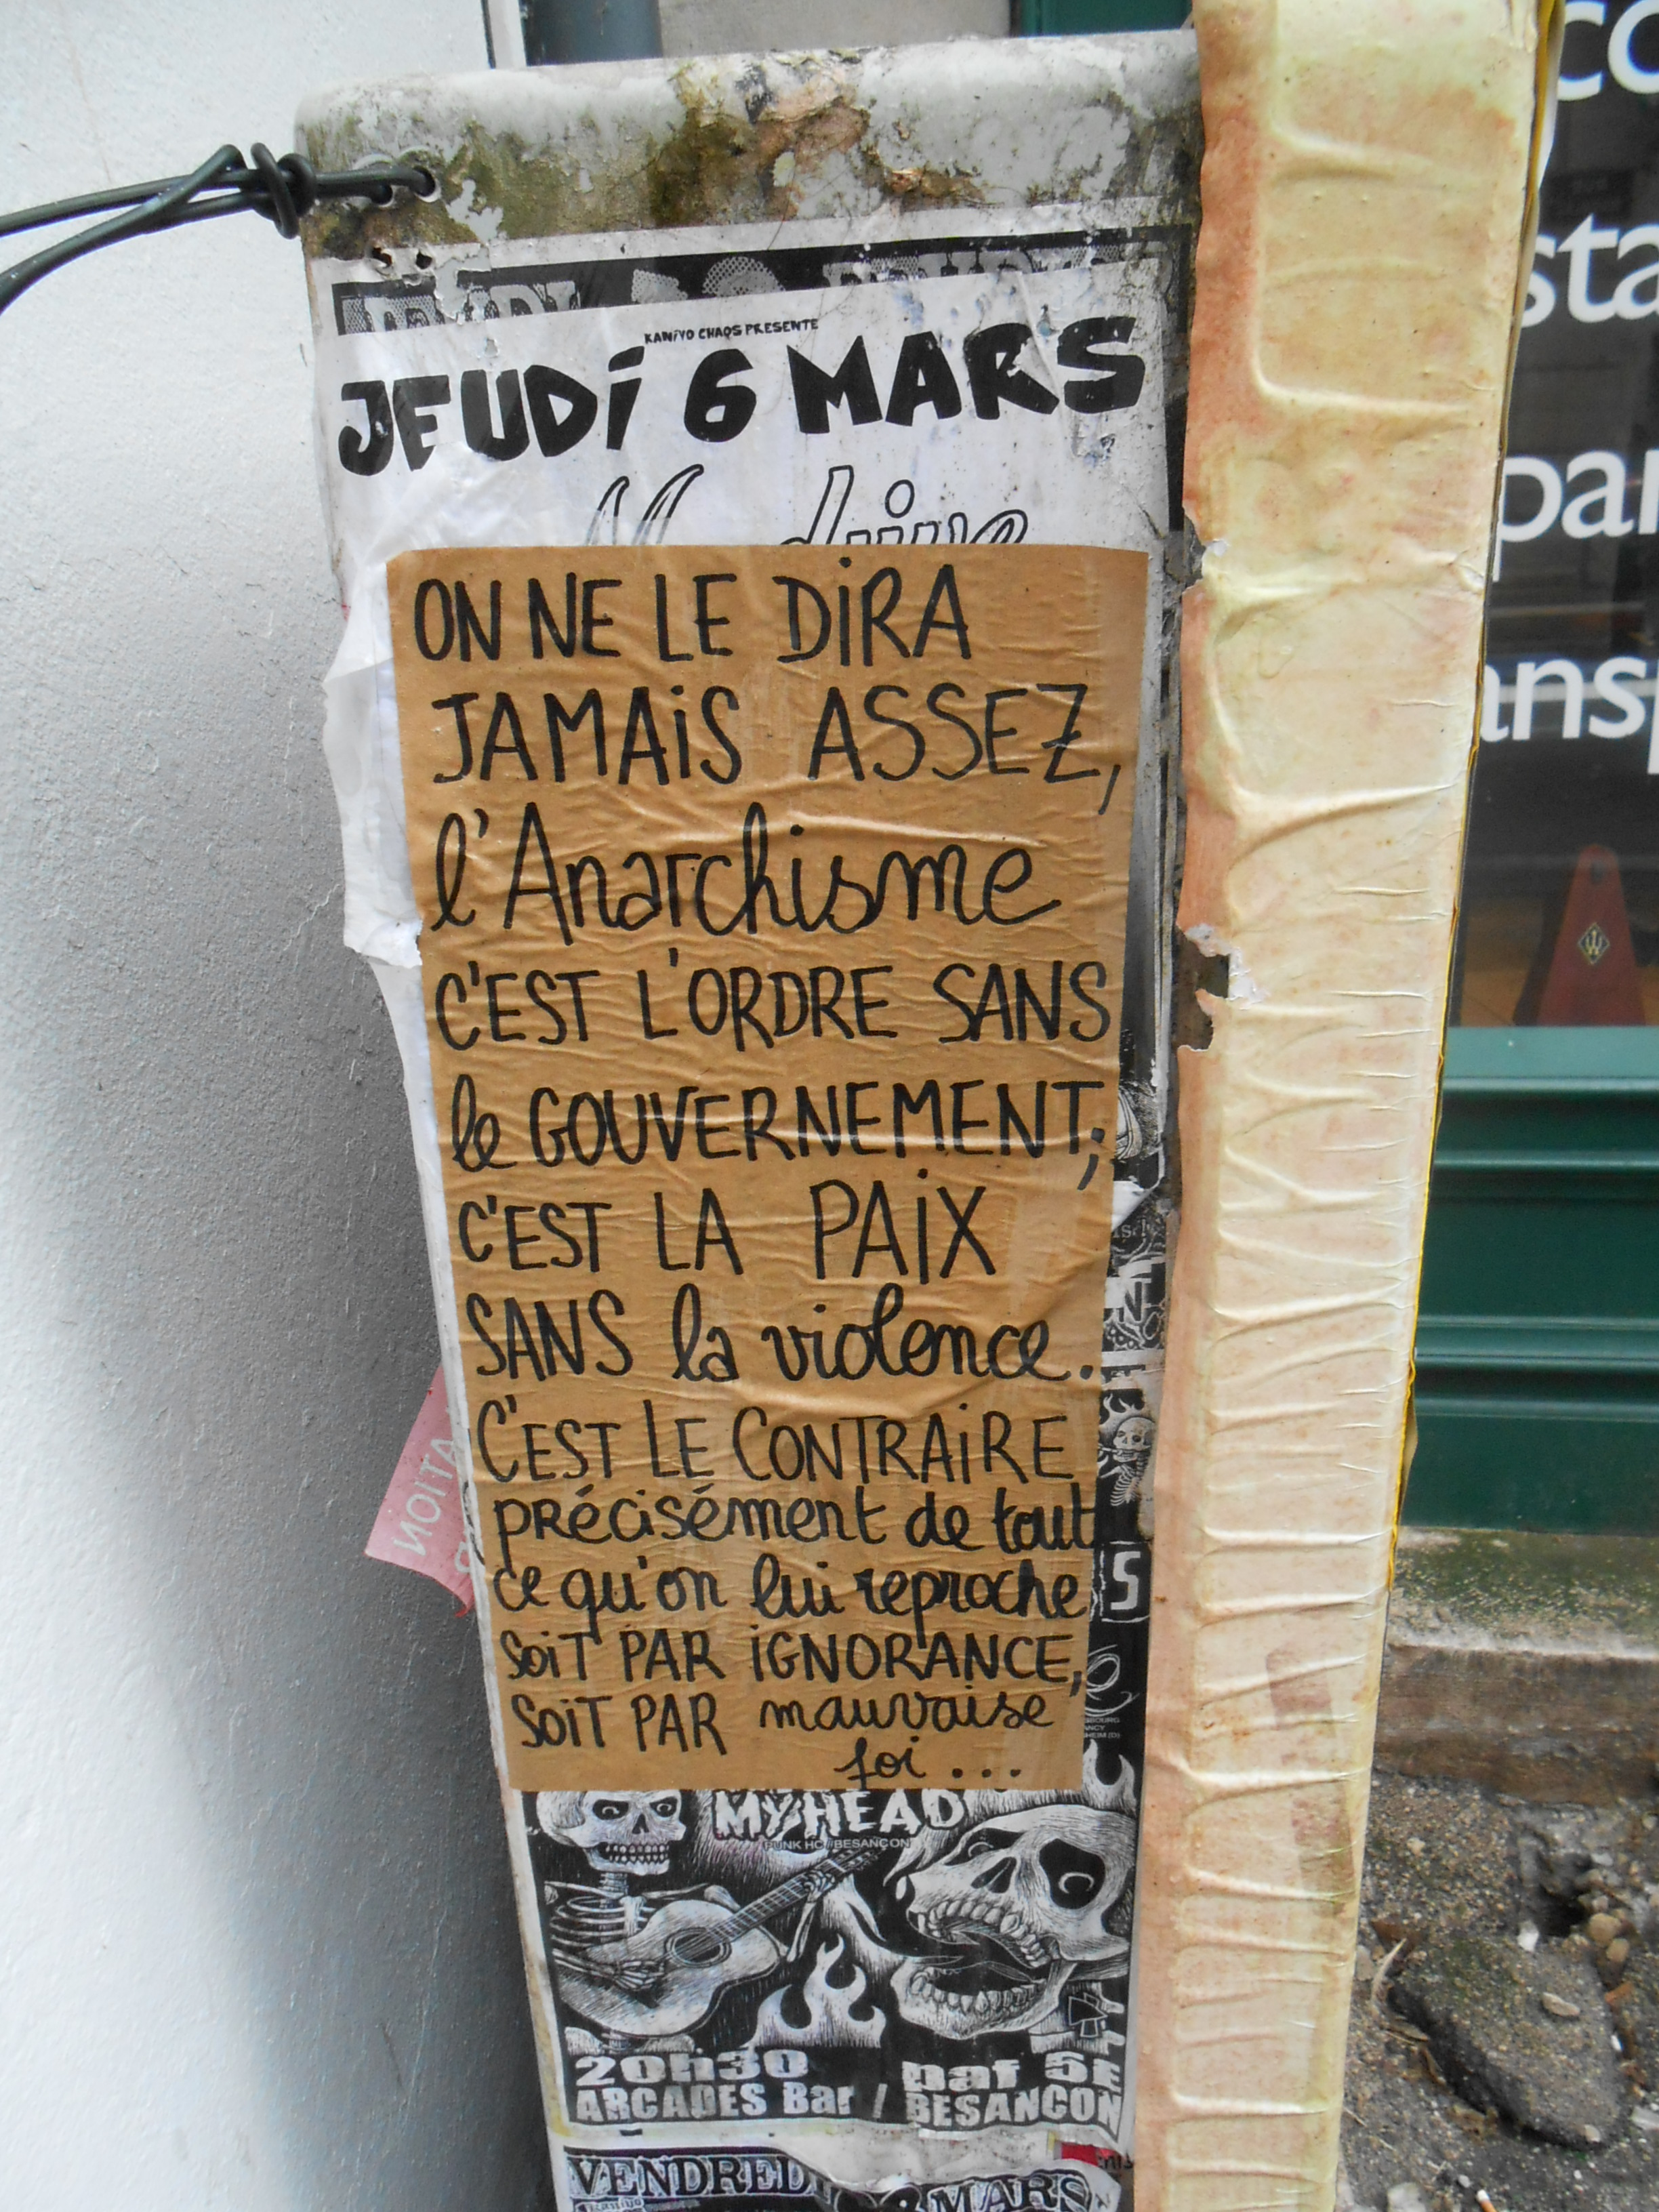 KANiYO CHAOS PRESENTE
JEUDi 6 MARS
ON NE LE DiRA
JAMAiS ASSEZ,
l'Anarchisme
C'EST L'ORDRE SANS
le GOUVERNEMENT;
C'EST LA PAiX
SANS la violence.
C'EST LE CONTRAiRE
précisément de tout
ce qu'on lui reproche
SOiT PAR iGNORANCE,
SOiT PAR mauvaise
foi...
MY HEAD
PUNK HC/BESANÇON
20h30 paf 5E
ARCADES Bar / BESANCON
VENDREDI
MARS
NOITA
S
co
sta
par
ansp